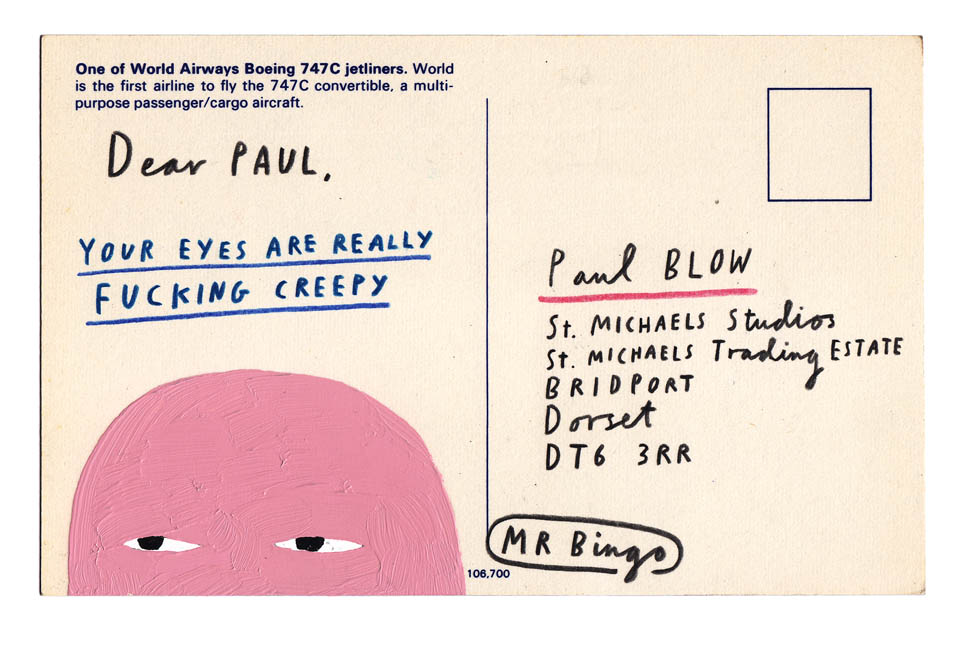 One of World Airways Boeing 747C jetliners. World
is the first airline to fly the 747C convertible, a multi-
purpose passenger/cargo aircraft.
Dear PAUL,
YOUR EYES ARE REALLY
FUCKING CREEPY
Paul BLOW
St. MICHAELS Studios
St. MICHAELS Trading ESTATE
BRIDPORT
Dorset
DT6 3RR
MR Bingo
106,700